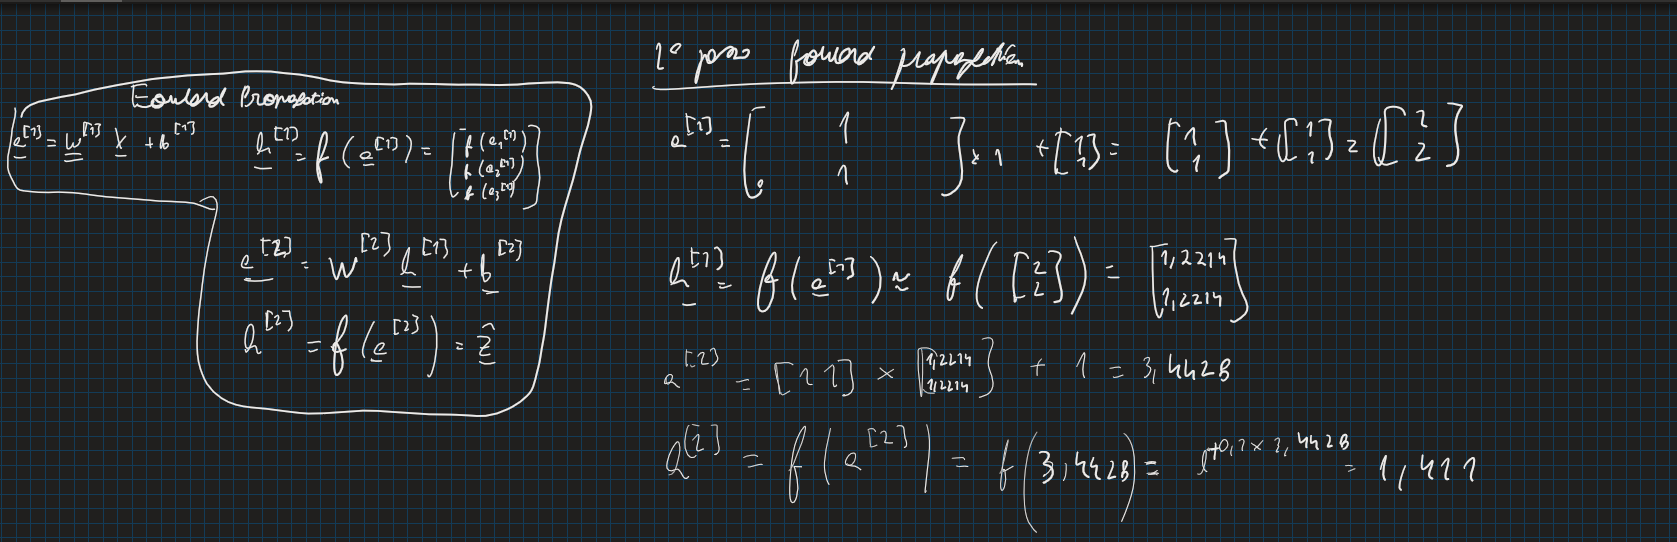 Forward Propagation
a^[1] = W^[1] x + b^[1]
h^[1] = f(a^[1]) = [f(a_1^[1]) f(a_2^[1]) f(a_3^[1])]
a^[2] = W^[2] h^[1] + b^[2]
h^[2] = f(a^[2]) = ẑ
1º passo forward propagation
a^[1] = [1 1] × 1 + [1 1] = [1 1] + [1 1] = [2 2]
h^[1] = f(a^[1]) ≈ f([2 2]) = [1,2214 1,2214]
a^[2] = [1 1] × [1,2214 1,2214] + 1 = 3,4428
h^[2] = f(a^[2]) = f(3,4428) = e^+0,1×3,4428 = 1,411